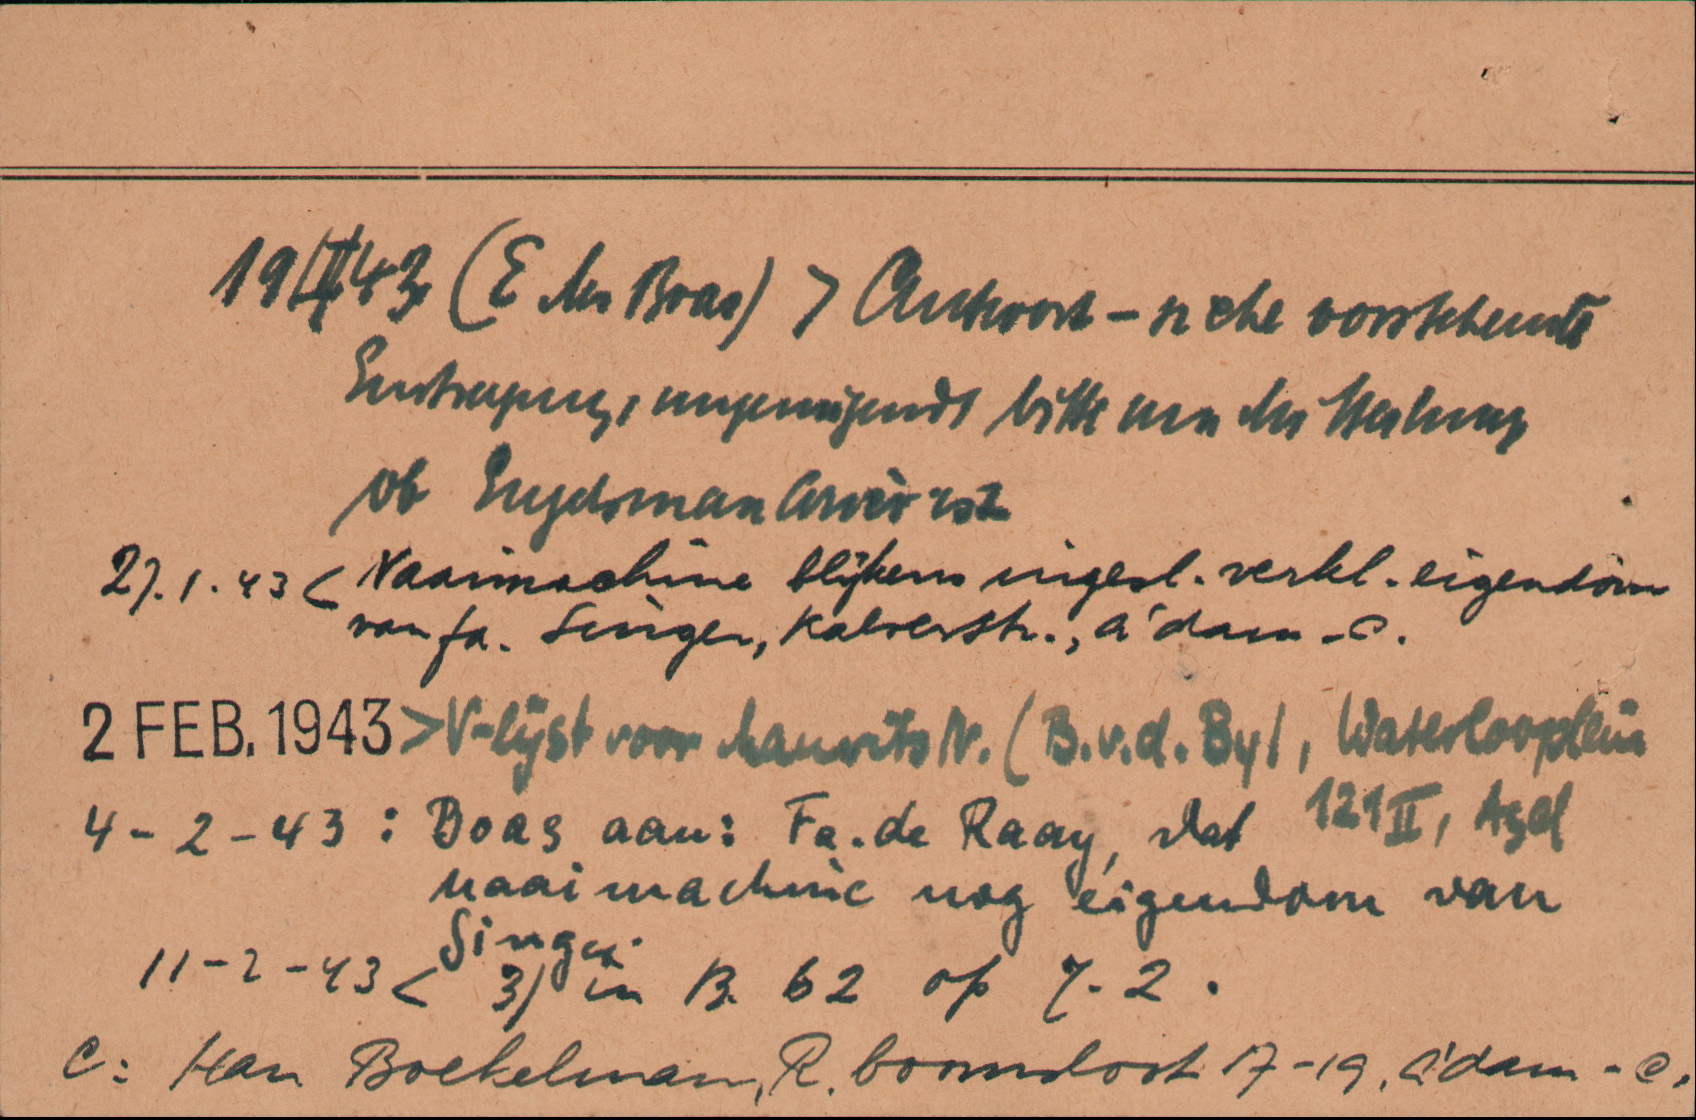 19/II 43 (E des Boas) > Antwort - siehe vorstehende
Eintragung, ungenügend, bitte um
ob Engelsman Arier ist
27.1.43 < Naaimachine blijkens ingesl. verkl. eigendom
van fa. Singer, Kalverstr., A'dam-C.
2 FEB. 1943 > V-lijst voor Maurits N. (B.v.d. By), Waterlooplein
121 II, Asd
4-2-43: Boas aan: Fa. de Raay, dat
naaimachine nog eigendom van
Singer
11-2-43 < 3) in B. 62 op 7.2.
C: Han Boekelman, R. boomsloot 17-19, A'dam-C.